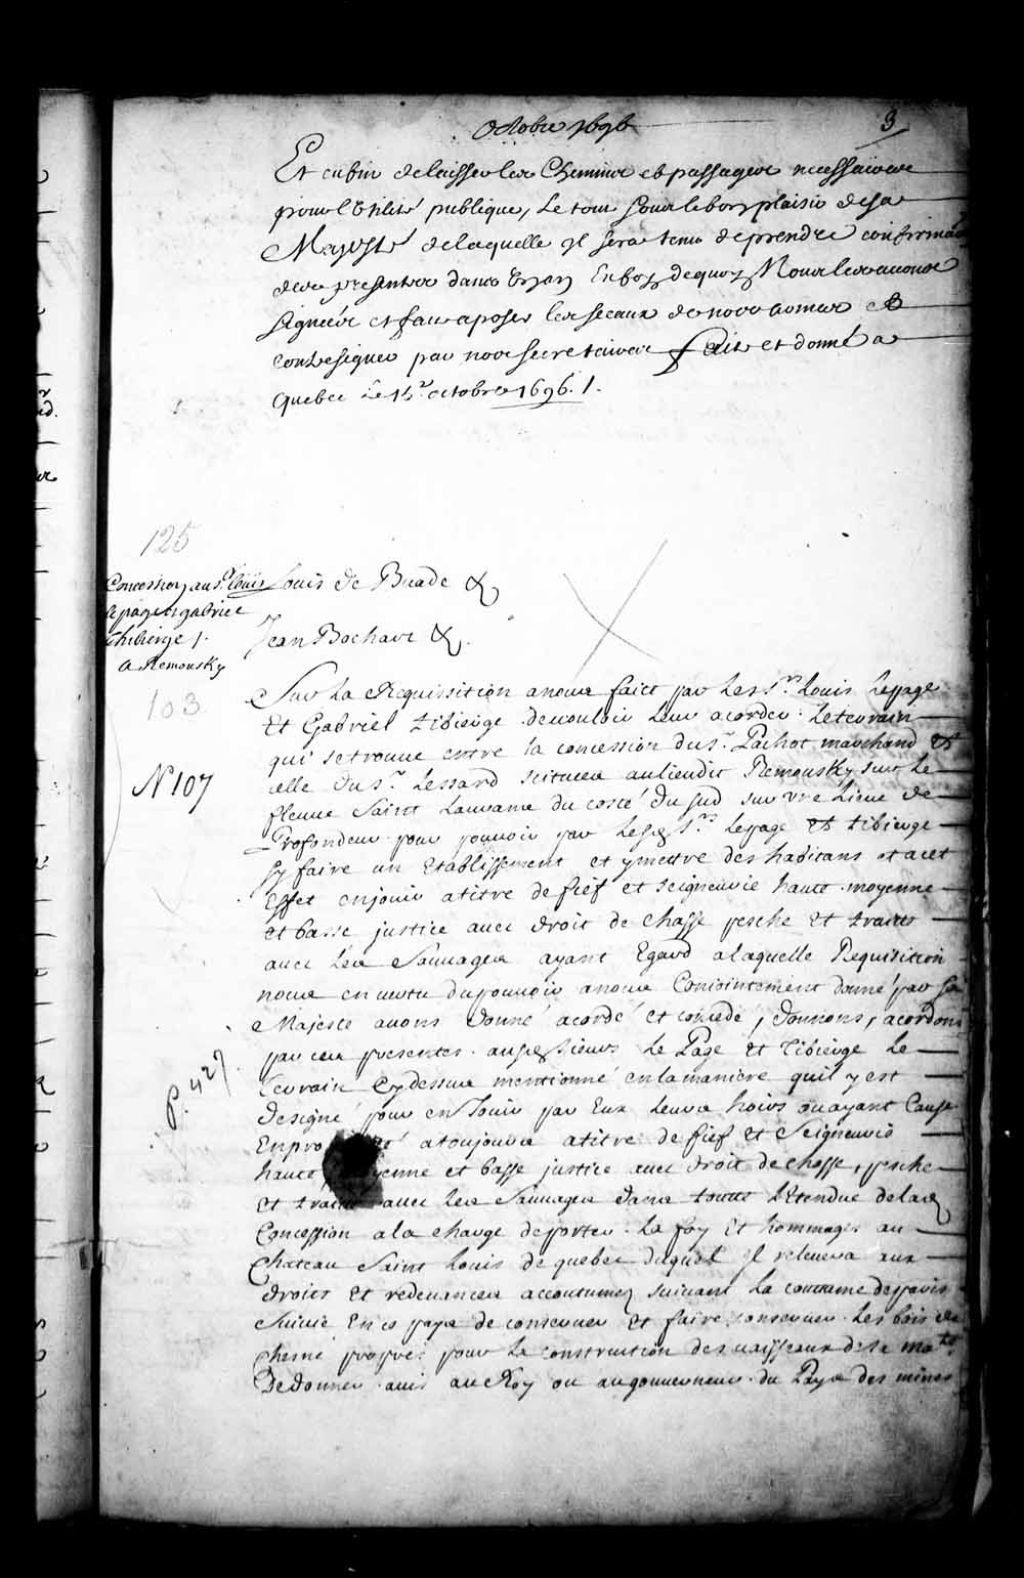 Octobre 1696
3
Et enfin de laisser les Chemins et passages necessaires
pour l'utilité publique, Le tout sous le bon plaisir de sa
Majesté de laquelle il sera tenu de prendre confirmãon
des presentes dans un an En foy de quoy Nous les avons
signées et fait aposer les sceaux de nos armes et
contresigner par nos secretaires fait et donné a
Quebec Le 15.e octobre 1696. /.
125
Concession au Sr. Louis
Lepage et gabriel
thibierge /.
a Remousky
103
N 107
P. 427.
Louis de Buade &
Jean Bochart &.
Sur La Requisition a nous faite par Les Srs. Louis Lepage
Et Gabriel tibierge de vouloir leur acorder Le terrain
qui se trouve entre la concession du Sr. Pachot marchand et
celle du Sr. Lessard scituées au lieu dit Remousky sur Le
fleuve Saint Laurans du costé du sud sur une Lieue de
Profondeur pour pouvoir par Lesd. Srs. Lepage et tibierge
sy faire un Etablissement et y mettre des habitans et a cet
Effet en jouir a titre de fief et seigneurie haute moyenne
et basse justice avec droit de chasse pesche et traitte
avec Les Sauvages ayant Egard a laquelle Requisition
nous en vertu du pouvoir a nous Conjointement donné par Sa
Majesté avons donné acordé et concedé, donnons, acordons
par ces presentes ausd. Sieurs Le Page et Tibierge Le
terrain Cy dessus mentionné en la maniere quil y est
designé pour en Jouir par Eux Leurs hoirs ou ayant Cause
En pro té a toujours a titre de fief et Seigneurie
haute, yenne et basse justice avec droit de chasse, pesche
et traitte avec Les Sauvages dans toutte L'Etendue de lad.
Concession a la charge de porter La foy Et hommages au
Chateau Saint Louis de quebec duquel Il relevera aux
droits et redevances accoutumez suivant la coutume de paris
suivie En ce pays de conserver et faire conserver Les bois de
chesne propres pour La construction des vaisseaux de sa ma.té
De donner avis au Roy ou au gouverneur du Pays des mines